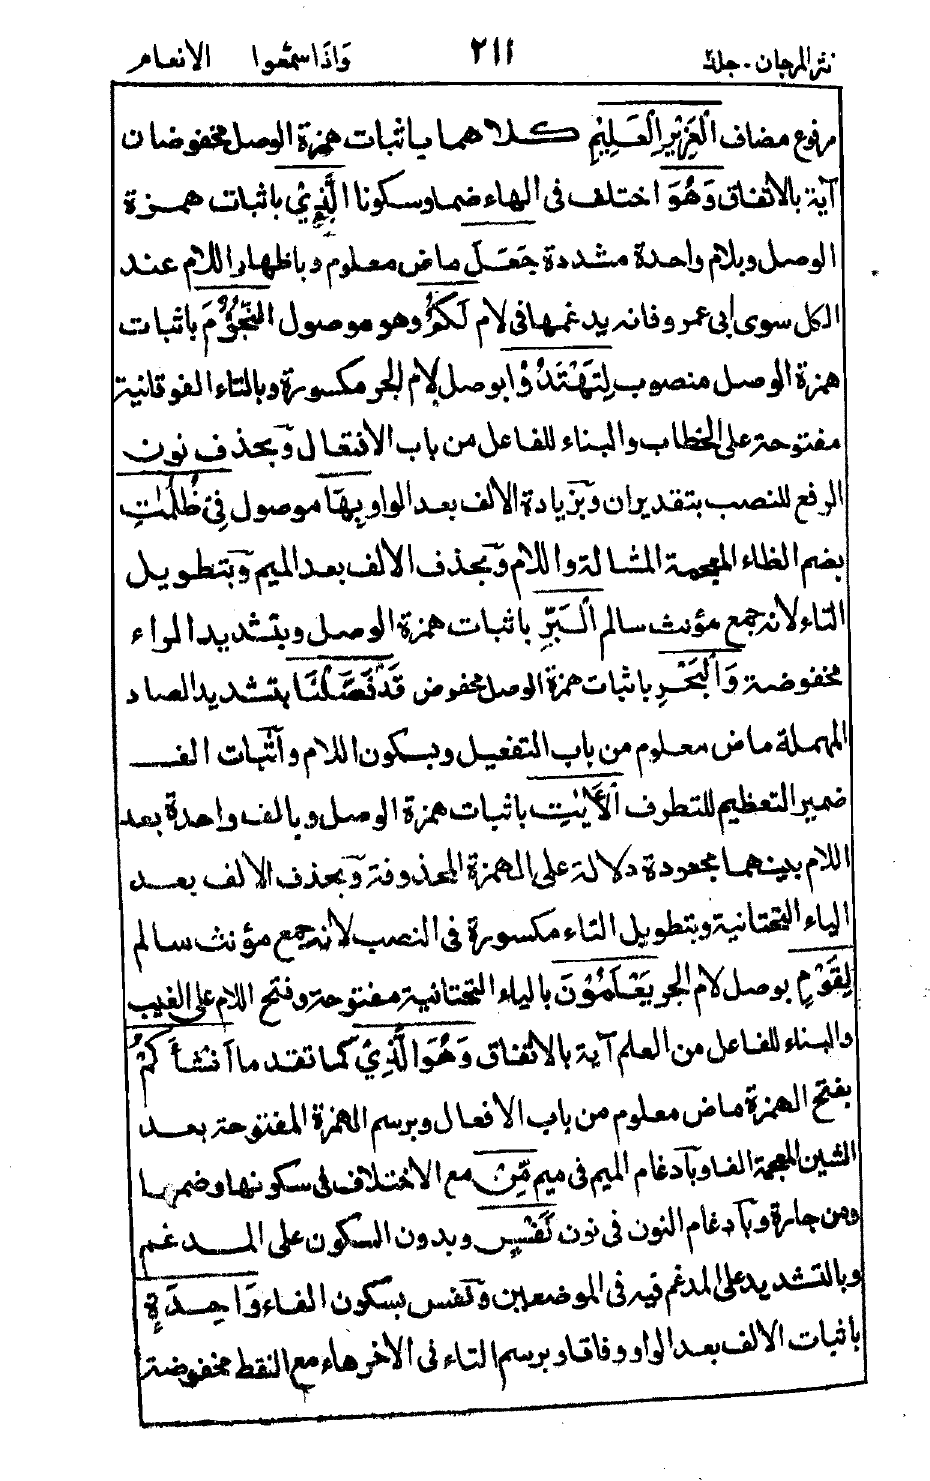 نثر المرجان - جلد ٢ ٢١١ وَاذَا سمّعوا الانعام
مرفوع مضاف الْعَزِيْزِ الْعَلِيْمِ كلاهما باثبات همزة الوصل مخفوضان
آية بالاتفاق وَهُوَ اختلف فى الهاء ضما وسكونا الَّذِيْ باثبات همزة
الوصل وبلام واحدة مشددة جَعَلَ ماض معلوم وباظهار اللام عند
الكل سوى ابى عمرو فانه يدغمها فى لام لَكُمُ وهو موصول النُّجُوْمَ باثبات
همزة الوصل منصوب لِتَهْتَدُوْا بوصل لام الجر مكسورة وبالتاء الفوقانية
مفتوحة على الخطاب والبناء للفاعل من باب الافتعال وبحذف نون
الرفع للنصب بتقدير ان وبزيادة الالف بعد الواو بِهَا موصول فِيْ ظُلُمٰتِ
بضم الظاء المعجمة المشالة واللام وبحذف الالف بعد الميم وبتطويل
التاء لانه جمع مؤنث سالم الْبَرِّ باثبات همزة الوصل وبتشديد الراء
مخفوضة وَالْبَحْرِ باثبات همزة الوصل مخفوض قَدْ فَصَّلْنَا بتشديد الصاد
المهملة ماض معلوم من باب التفعيل وبسكون اللام واثبات الف
ضمير التعظيم للتطرف الْاٰيٰتِ باثبات همزة الوصل وبالف واحدة بعد
اللام بينهما مجعودة دلالة على الهمزة المحذوفة وبحذف الالف بعد
الياء التحتانية وبتطويل التاء مكسورة فى النصب لانه جمع مؤنث سالم
لِقَوْمٍ بوصل لام الجر يَعْلَمُوْنَ بالياء التحتانية مفتوحة وفتح اللام على الغيب
والبناء للفاعل من العلم آية بالاتفاق وَهُوَ الَّذِيْ كما تقدما اَنْشَأَكُمْ
بفتح الهمزة ماض معلوم من باب الافعال وبرسم الهمزة المفتوحة بعد
الشين المعجمة الفا وبادغام الميم فى ميم مِّنْ مع الاختلاف فى سكونها وضمها
ومن جارة وبادغام النون فى نون نَفْسٍ وبدون السكون على المدغم
وبالتشديد على المدغم فيه فى الموضعين ونفس بسكون الفاء وَاحِدَةٍ
باثبات الالف بعد الواو وفاقا وبرسم التاء فى الآخر هاء مع النقط مخفوضة